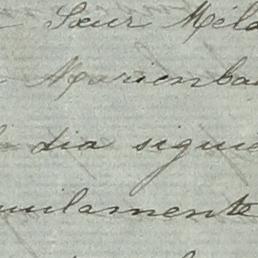 Sœur Méla
Marienba
dia siguie
uilamente